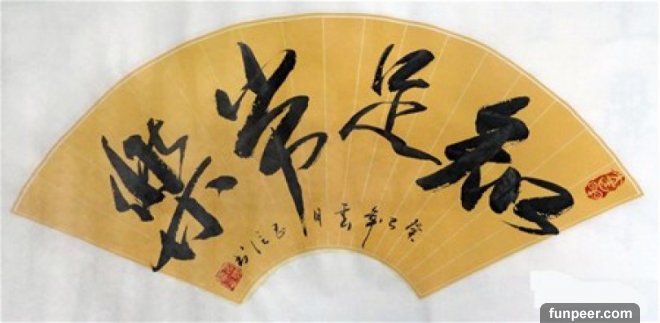 知足常樂
癸巳年
funpeer.com